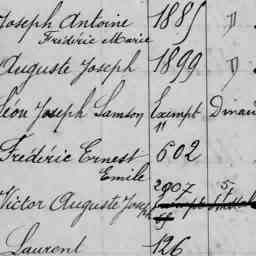 Joseph Antoine 1885 "
Frédéric Marie
Auguste Joseph 1899 "
Léon Joseph Samson Exempt
"
Frédéric Ernest 602
Emile
2907 5
Victor Auguste Joseph Exempt
Laurent 126